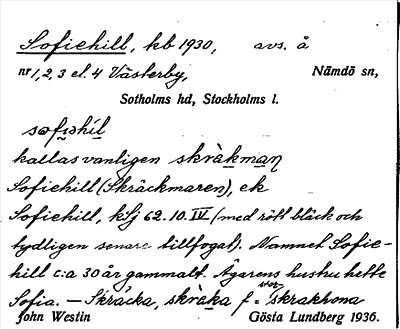 Sofiehill, kb 1930, avs. å
nr 1, 2, 3 el. 4 Västerby, Nämdö sn,
Sotholms hd, Stockholms l.
sofihíl
kallas vanligen skrὰkmaɳ
Sofiehill (Skräckmaren), ek
Sofiehill, kSj 62.10.IV (med rött bläck och
tydligen senare tillfogat). Namnet Sofie-
hill c:a 30 år gammalt. Ägarens hustru hette
Sofia. — Skräcka, skrὰka f = storskrakhona
John Westin Gösta Lundberg 1936.